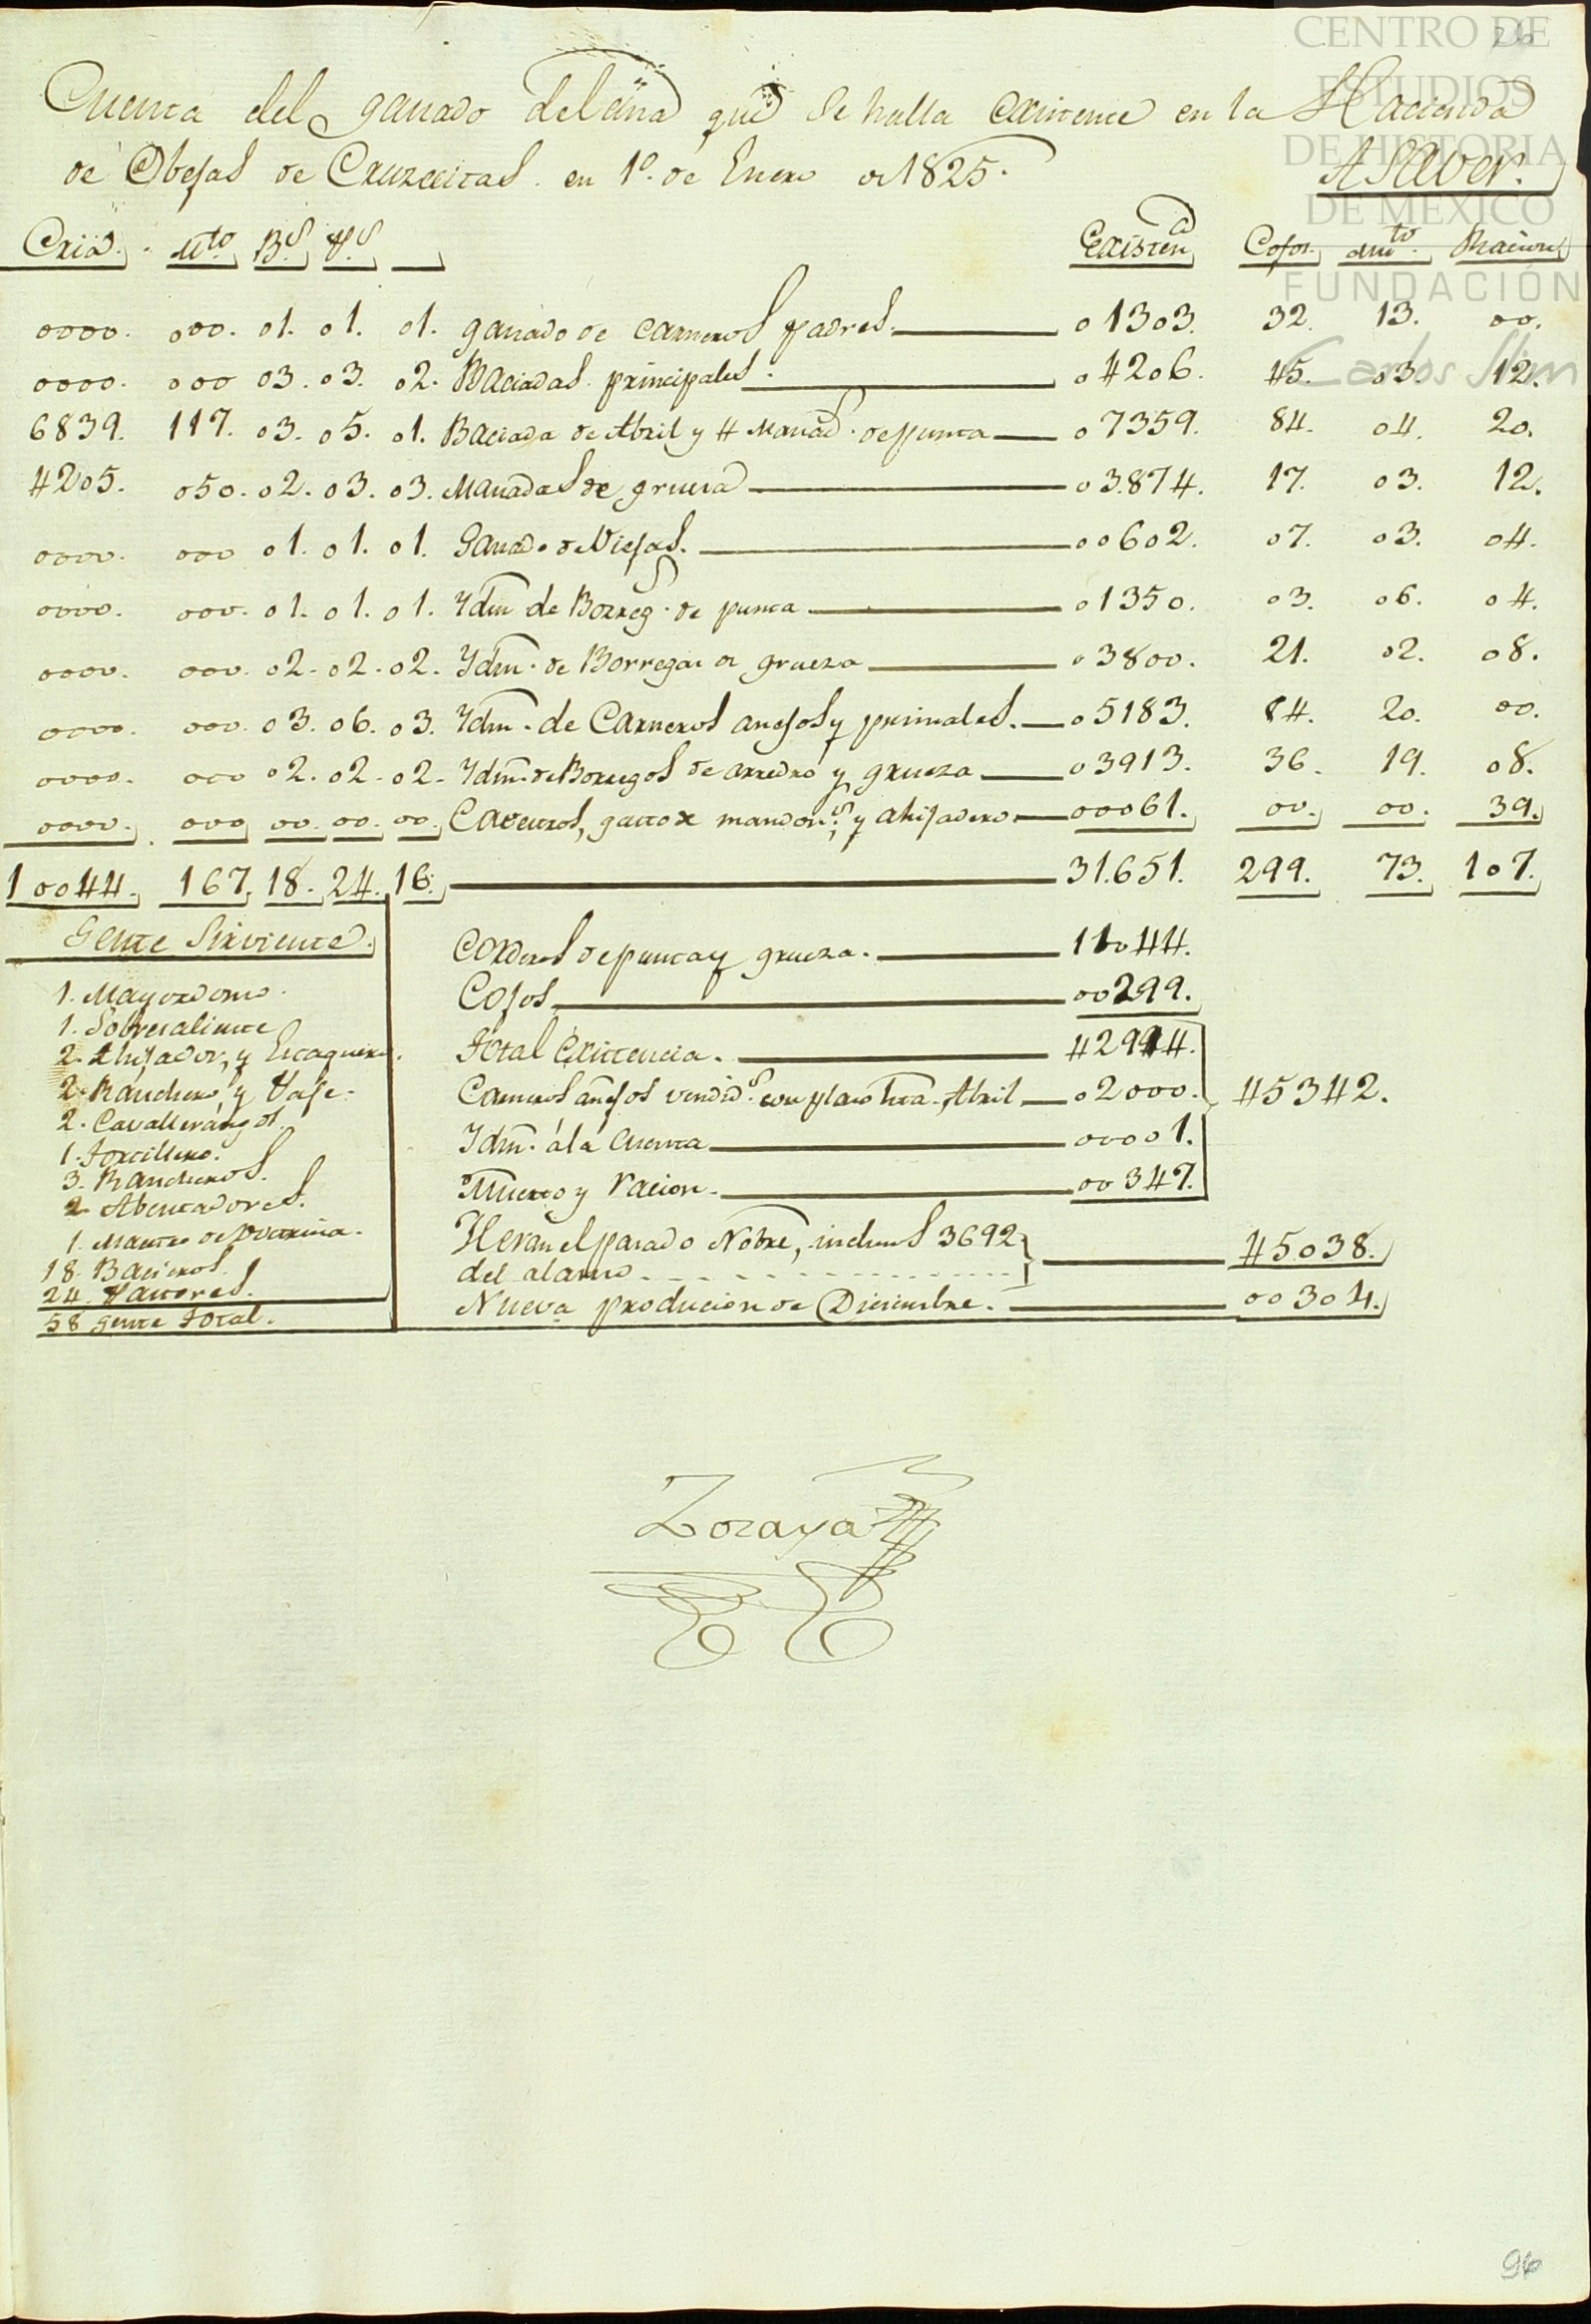 26
CENTRO DE
ESTUDIOS
DE HISTORIA
DE MÉXICO
FUNDACIÓN
Carlos Slim
Cuenta del ganado de lana que se halla existente en la Hacienda
de Obejas de Cruzecitas en 1º. de Enero de 1825. A Saver.
Cria. Mto. Bs. Ps. Existena Cojos. Muto. Racion
0000. 000. 01. 01. 01. ganado de carneros padres. 01303. 32. 13. 00.
0000. 000 03. 03. 02. Baciadas principales. 04206. 45. 03. 12.
6839. 117. 03. 05. 01. Baciada de Abril y 4 Manad. de punta 07359. 84. 04. 20.
4205. 050. 02. 03. 03. Manadas de grueza 03.874. 17. 03. 12.
0000. 000 01. 01. 01. Ganado de Viejas. 00602. 07. 03. 04.
0000. 000. 01. 01. 01. Ydm de Borreg. de punta 01350. 03. 06. 04.
0000. 000. 02. 02. 02. Ydm. de Borregas de grueza 03800. 21. 02. 08.
0000. 000. 03. 06. 03. Ydm. de Carneros anejos y primales. 05183. 84. 20. 00.
0000. 000 02. 02. 02. Ydm. de Borregos de arredro y grueza 03913. 36. 19. 08.
0000. 000 00. 00. 00. Cavestros, gasto de mandons. y ahijadero 00061. 00. 00. 39.
10044. 167. 18. 24. 16. 31.651. 299. 73. 107.
Gente Sirviente.
1. Mayordomo.
1. Sobresaliente
2. Ahijador, y Estaquero.
2. Ranchero y Vaje.
2. Cavallerangos.
1. Tortillero.
3. Rancheros.
2. Abentadores.
1. Maestro de Doctrina.
18. Bacieros.
24. Pastores.
58 gente Total.
Corderos de punta y grueza. 11044.
Cojos 00299.
Total Existencia. 42994.
Carneros añejos vendids. con plazo hta. Abril 02000. 45342.
Ydm. á la Cuenta 00001.
Muerto y racion. 00347.
Heran el pasado Nobre, inclusos 3692
del alamo 45038.
Nueva producion de Diciembre. 00304.
Zozaya
96